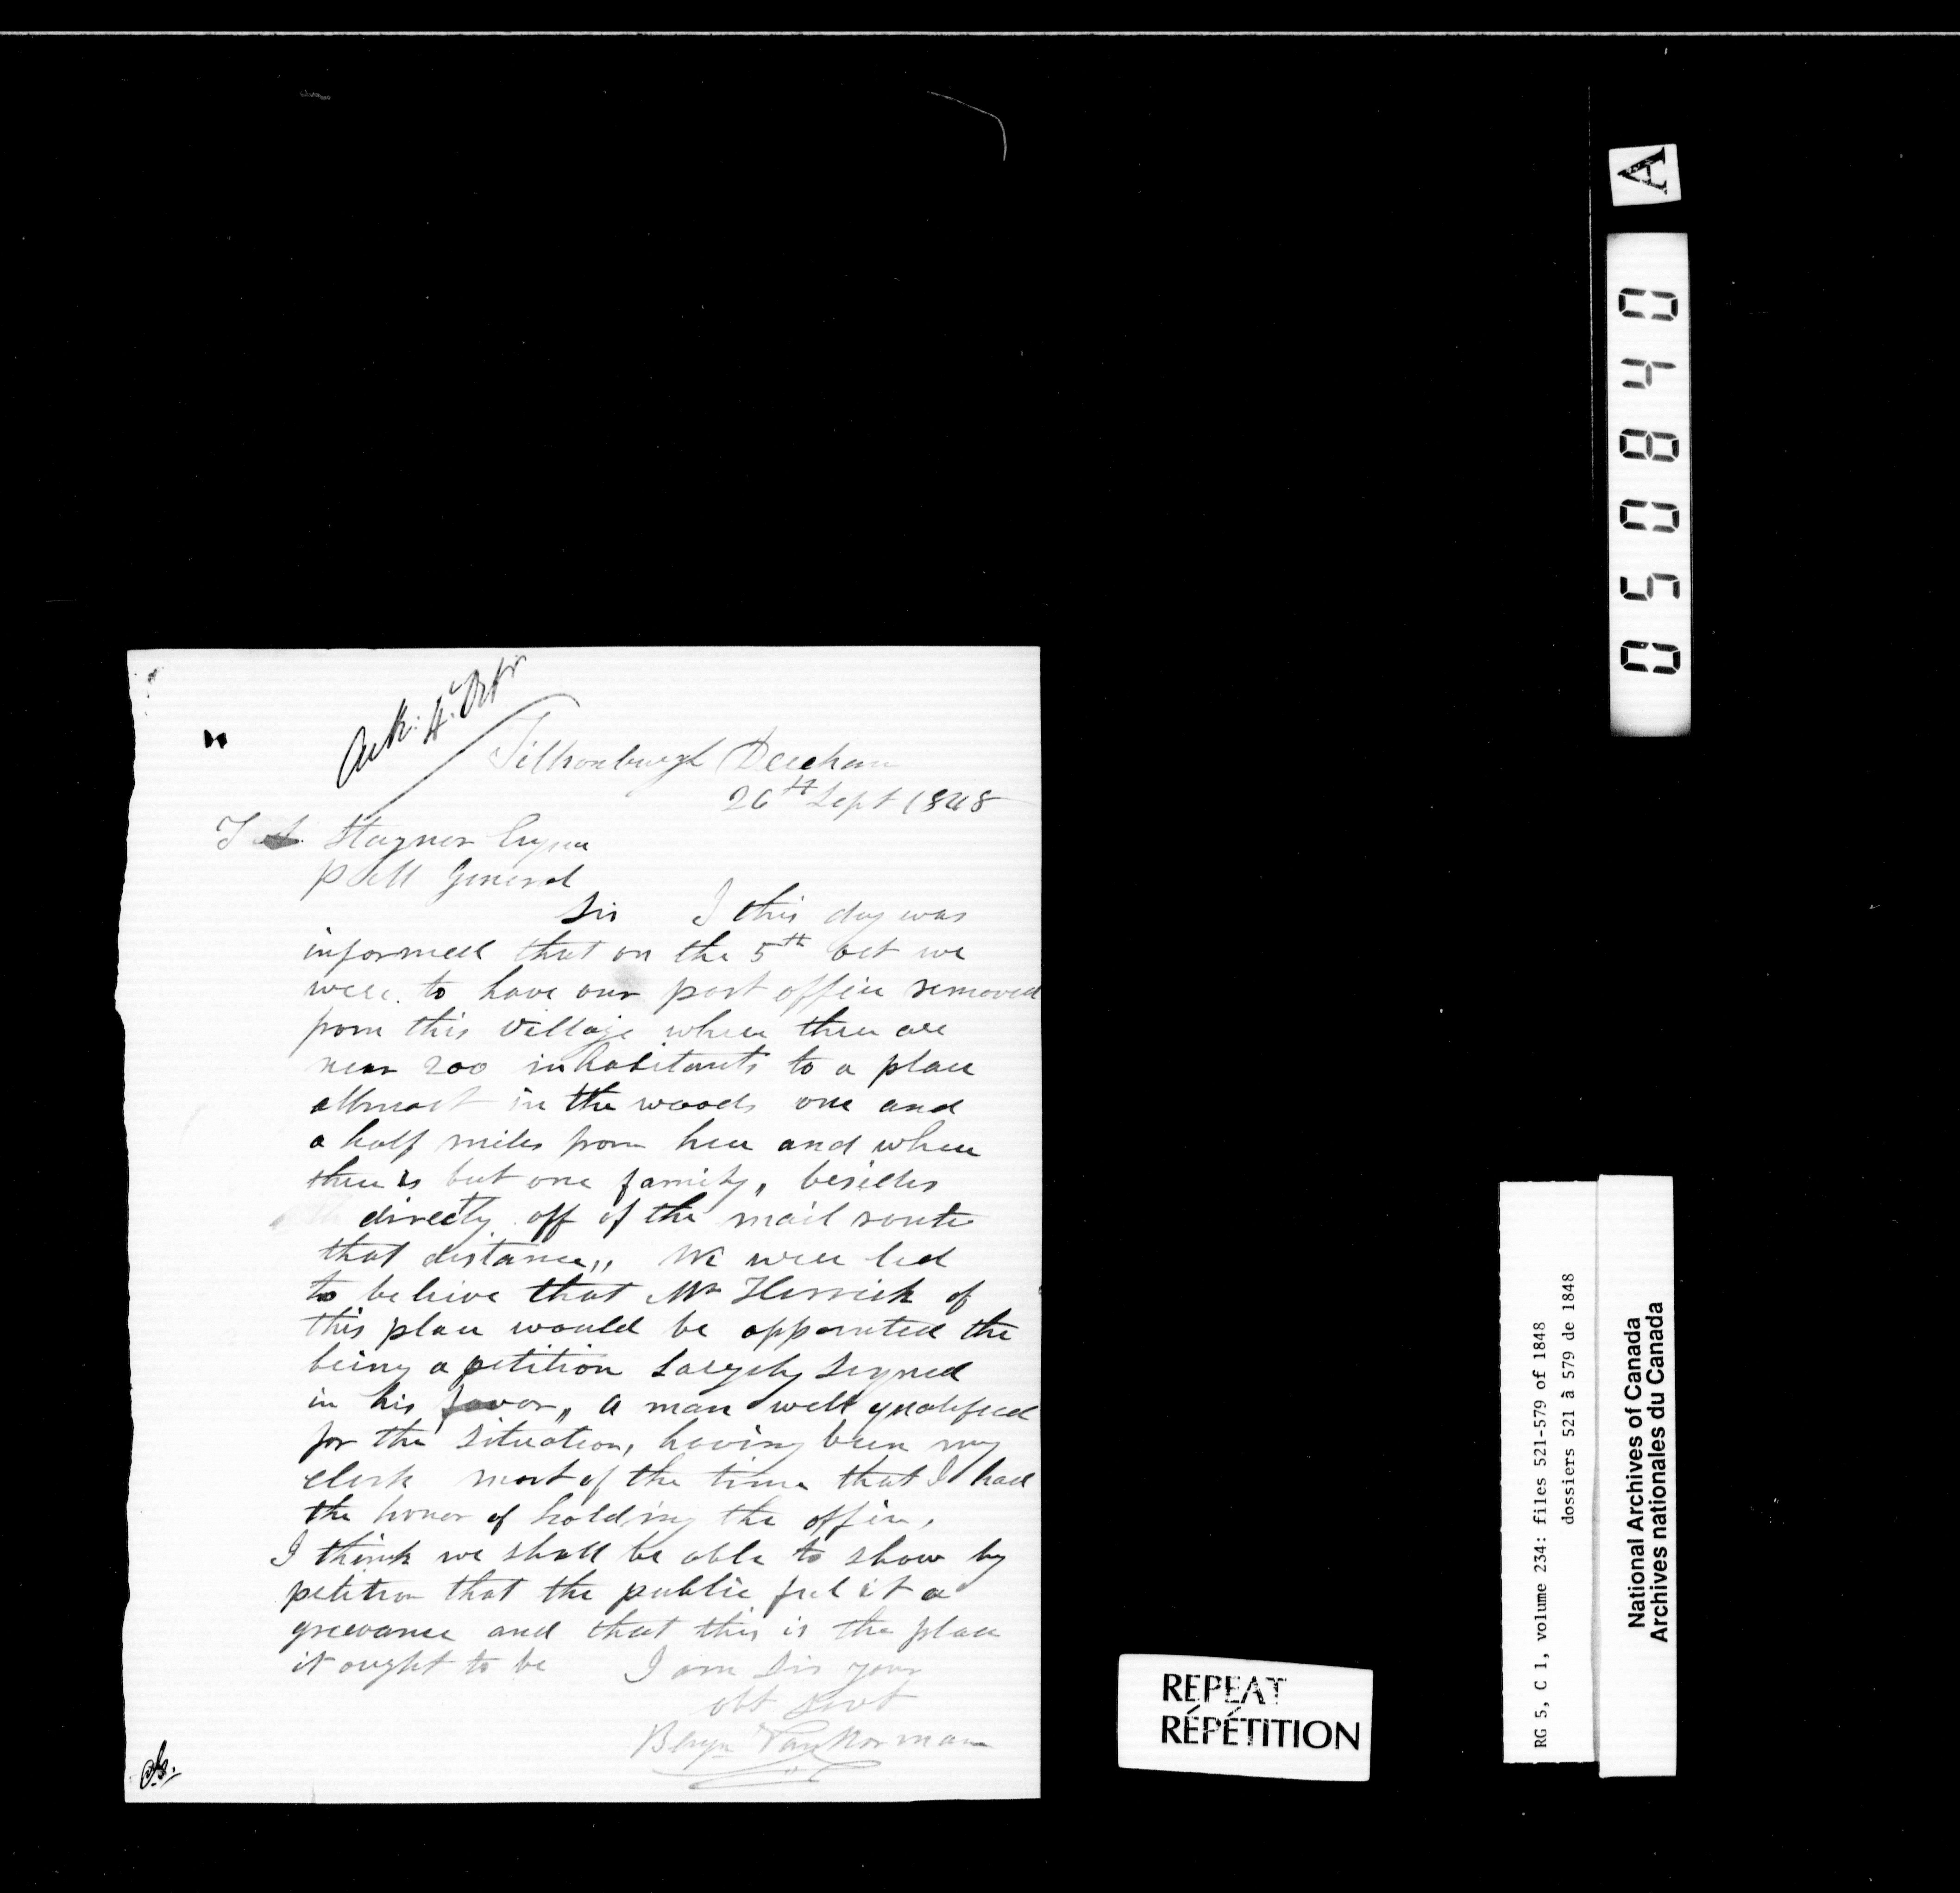 Ack: 4. Octr
Tillsonburgh Dereham
26th Sept 1848
T A. Stayner Esqr
P M General
Sir I this day was
informed that on the 5th oct we
were to have our post office removed
from this Village where there are
near 200 inhabitants to a place
allmost in the woods one and
a half miles from here and where
there is but one family, besides
directly off of the mail route
that distance,, We were led
to beleive that Mr Herrick of
this place would be appointed the
being a petition largely signed
in his favor,, a man well qualified
for the situation, having been my
clerk most of the time that I had
the honor of holding the office,
I think we shall be able to show by
petition that the public feel it a
greevance and that this is the place
it ought to be I am Sir your
obt Servt
Benjn VanNorman
A
048050
RG 5, C 1, volume 234: files 521-579 of 1848
dossiers 521 à 579 de 1848
National Archives of Canada
Archives nationales du Canada
REPEAT
RÉPÉTITION